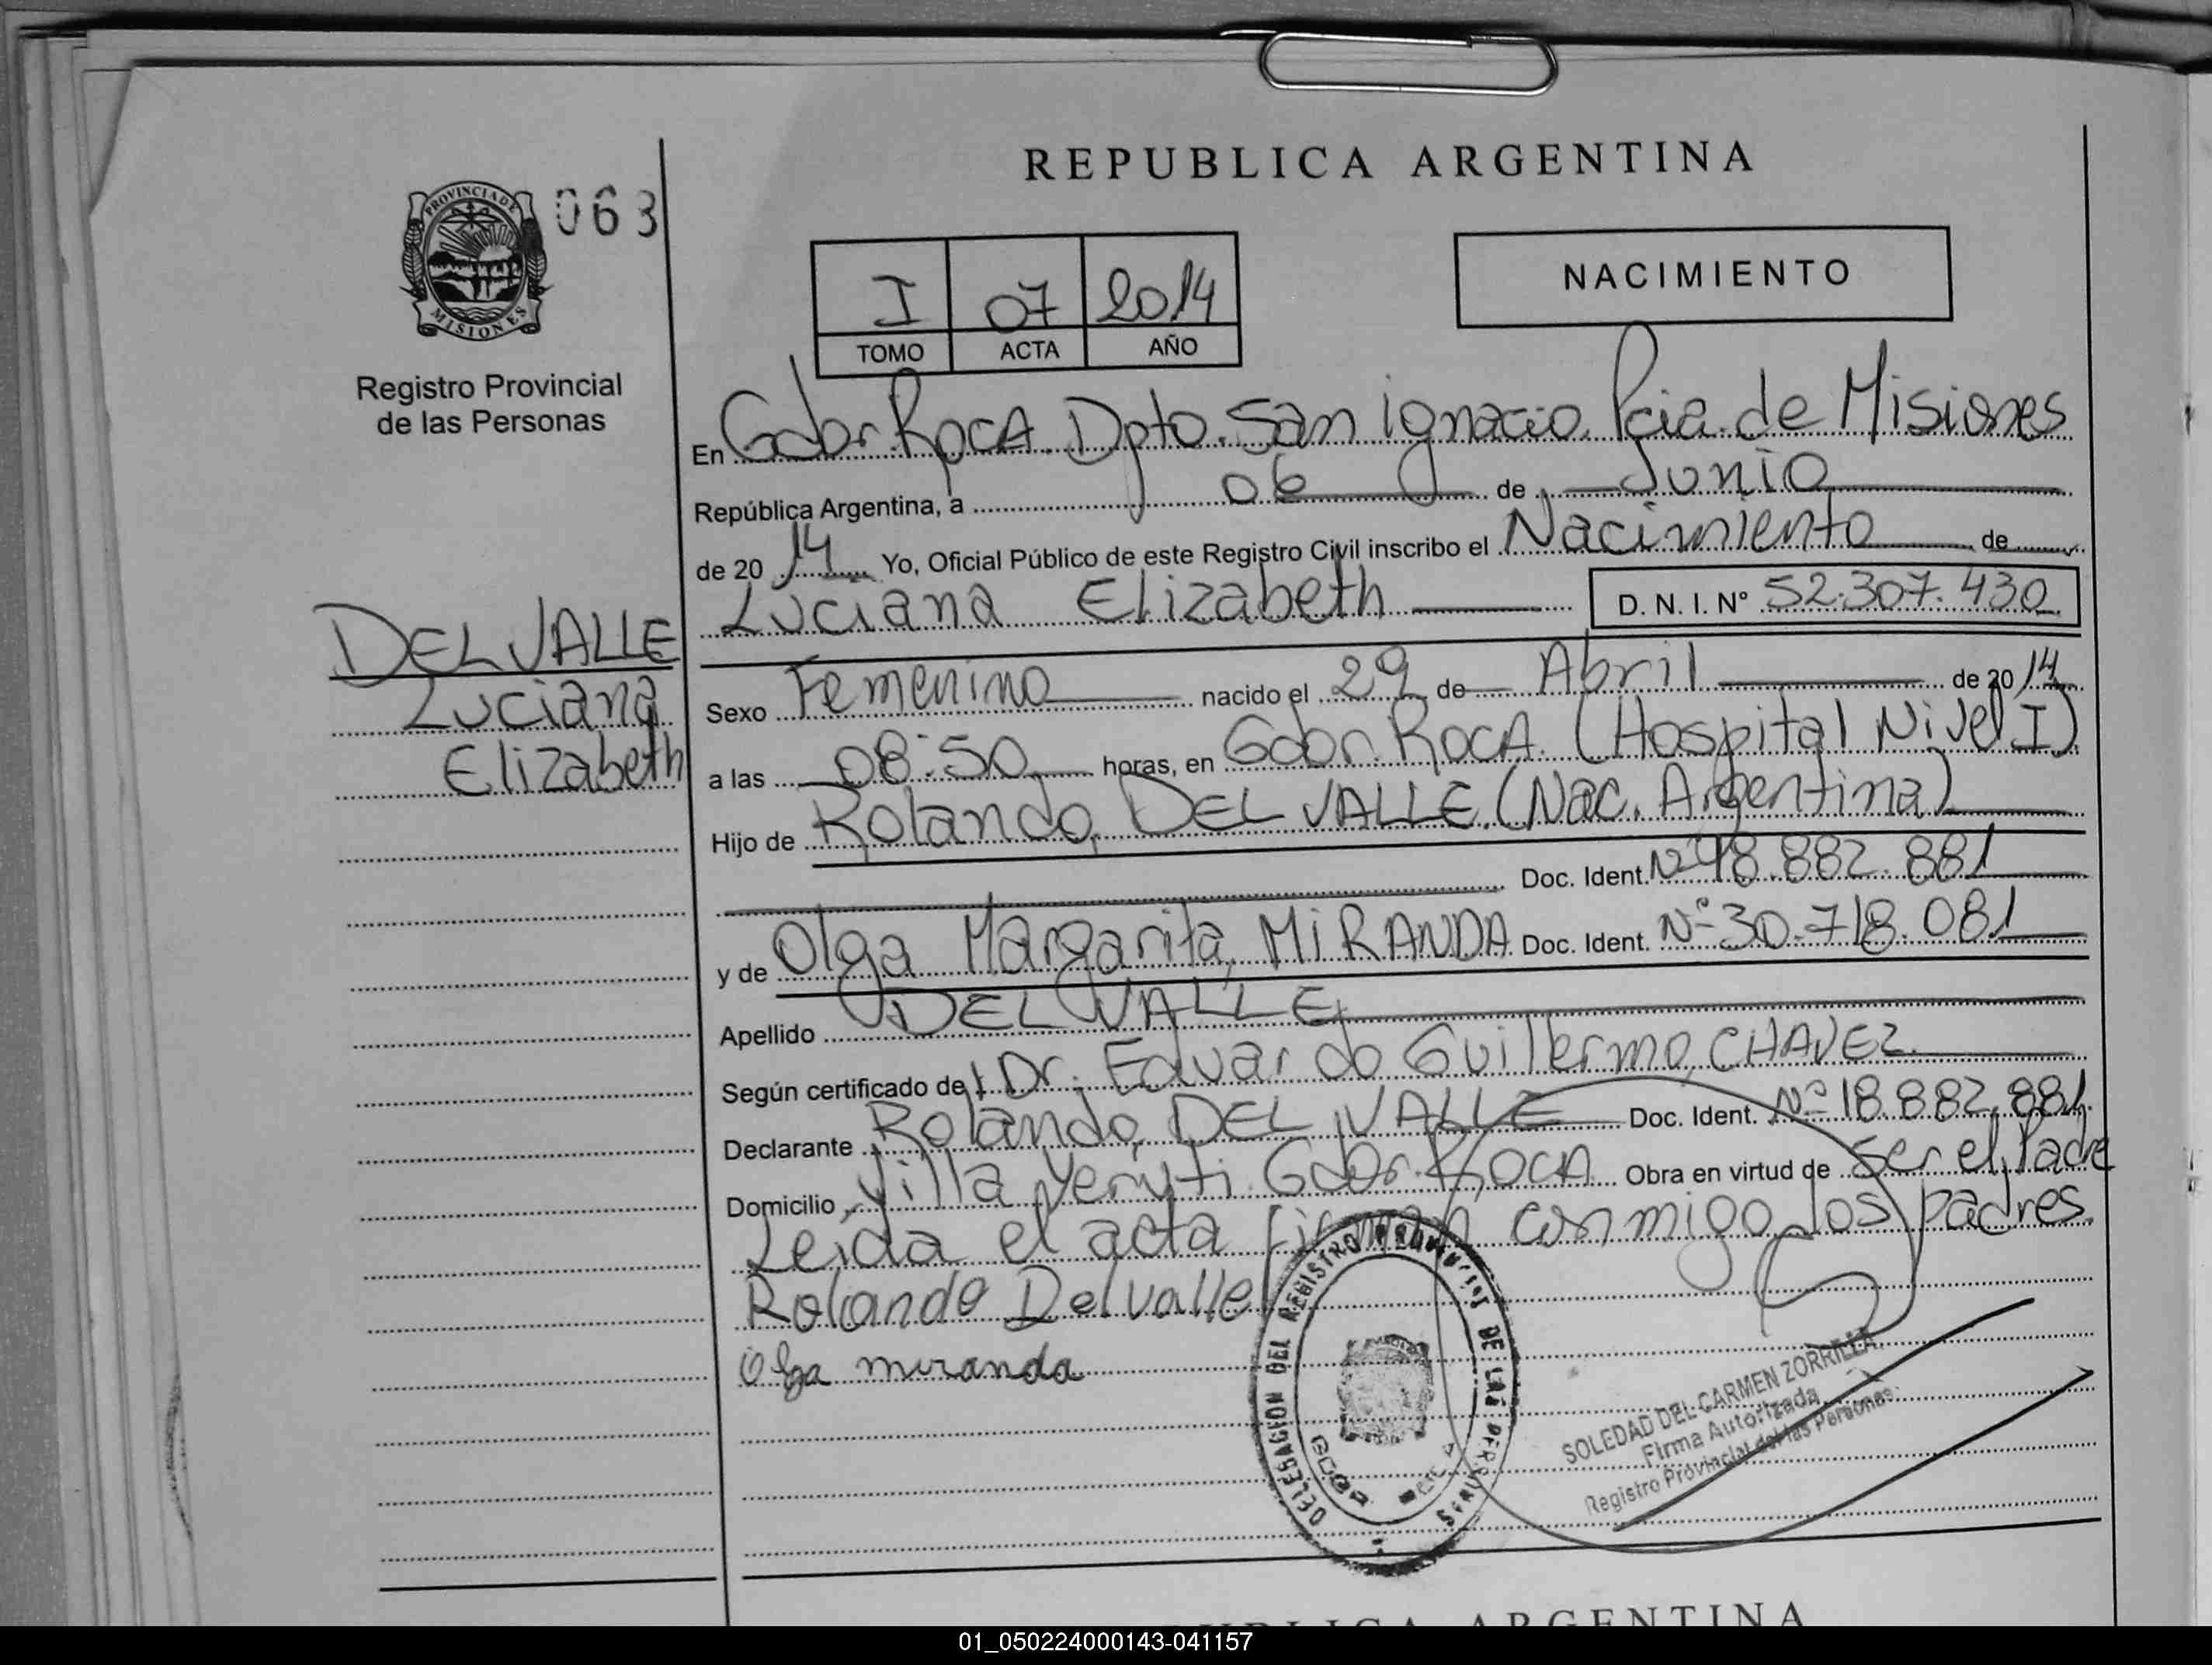 REPUBLICA ARGENTINA
PROVINCIA DE
MISIONES
063
Registro Provincial
de las Personas
I 07 2014
TOMO ACTA AÑO
NACIMIENTO
En Gdor. Roca. Dpto. San Ignacio. Pcia. de Misiones
República Argentina, a 06 de Junio
de 2014 Yo, Oficial Público de este Registro Civil inscribo el Nacimiento de
Luciana Elizabeth D. N. I. N° 52.307.430
DEL VALLE
Luciana
Elizabeth
Sexo Femenino nacido el 29 de Abril de 2014
a las 08:50 horas, en Gdor. Roca. (Hospital Nivel I)
Hijo de Rolando, DEL VALLE. (Nac. Argentina)
Doc. Ident. N° 18.882.881
y de Olga Margarita, MIRANDA Doc. Ident. N° 30.718.081
Apellido DEL VALLE
Según certificado de Dr. Eduardo Guillermo, CHAVEZ.
Declarante Rolando, DEL VALLE Doc. Ident. N° 18.882.881
Domicilio Villa Yeruti. Gdor. Roca Obra en virtud de Ser el Padre
Leida el acta firman conmigo los padres.
Rolando Delvalle
Olga miranda
DELEGACION DEL REGISTRO PROVINCIAL DE LAS PERSONAS
GDOR ROCA
SOLEDAD DEL CARMEN ZORRILLA
Firma Autorizada
Registro Provincial de las Personas
REPUBLICA ARGENTINA
01_050224000143-041157